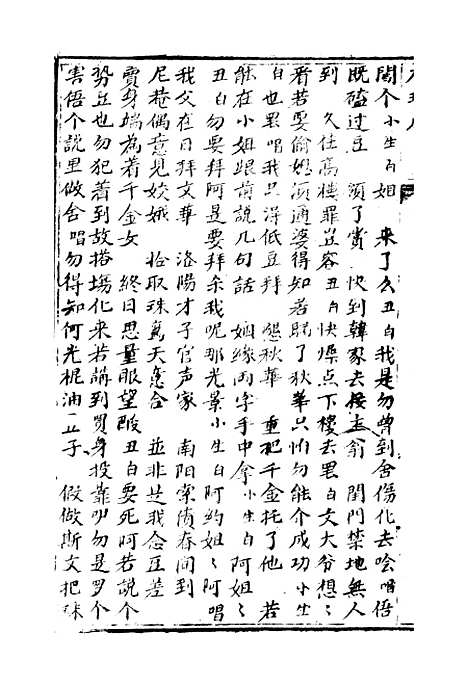 閤个 小生白姐 来了么丑白我是勿曾到舍傷化去哙唱唔
既磕过豆 須了賞 快到韓家去接主俞 閨門禁地無人
到 久住高樓罪豈容 丑白快燥点下樓去罢白文大爷想〻
看若要偷媳須通婆得知若賜了秋華只怕勿能个成功小生
白也罢唱我只得低豆拜 懇秋華 重把千金托了他 若
能在小姐跟前説几句話 姻緣两字手中拿小生白阿姐〻
丑白勿要拜阿是要拜杀我呢那光景小生白阿約姐〻阿唱
我父在日拜文華 洛陽才子官声家 南阳棠濱春间到
尼菴偶意見姣娥 拾取珠鳳天意合 並非是我念豆差
賣身端為着千金女 終日思量眼望瞍 丑白要死阿若説个
势豆也勿犯着到故搭塲化来若諞到買身投靠叩勿是罗个
害唔个説里做舍 唱勿得知何光棍油一豆子 假做斯文把珠